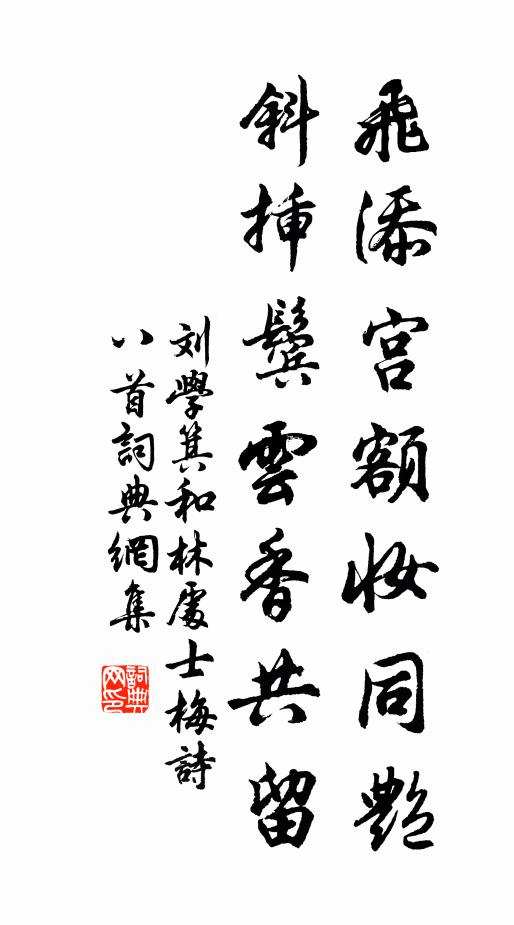 飛添宮額妝同艷
斜挿鬢雲香共留
刘學箕和林處士梅詩
八首詞典網集
詞典網印